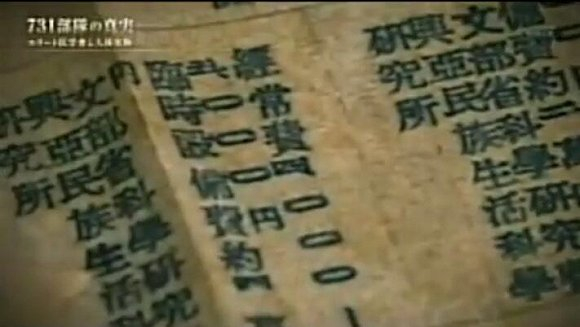 備費約二萬
文部省科學研究
興亞民族生活科學
研究所
經常費四〇〇〇
〇〇〇円
臨時設備費約
円
文部省科學研究
興亞民族生活
研究所
731部隊の真実
エリート医学者と人体実験